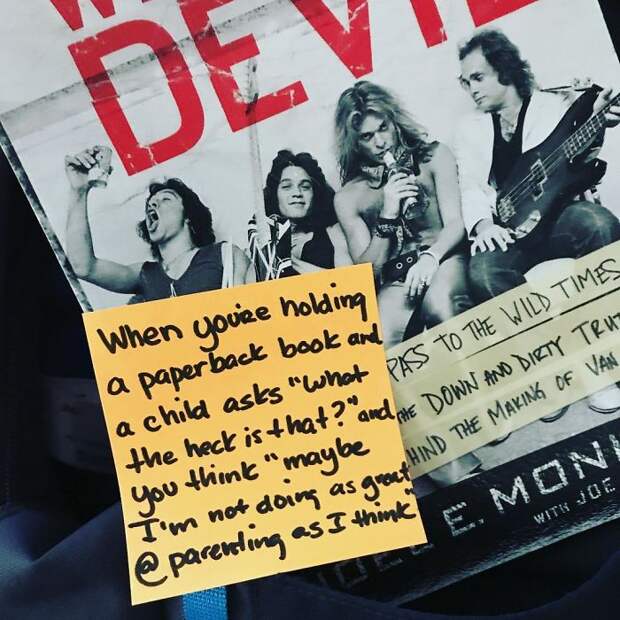 DEVIL
When you're holding
a paperback book and
a child asks "what
the heck is that?" and
you think "maybe
I'm not doing as great
@ parenting as I think"
PASS TO THE WILD TIMES
THE DOWN AND DIRTY TRUT
HIND THE MAKING OF VAN
E. MON
WITH JOE